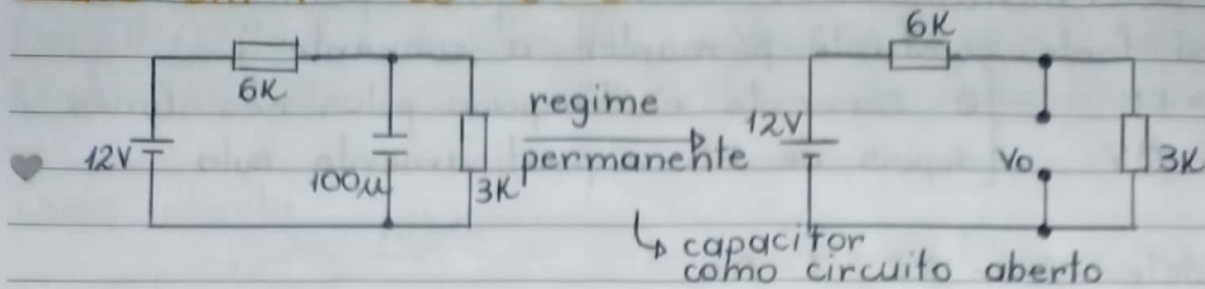 6K
12V
100μ
3K
regime
permanente
capacitor
como circuito aberto
6K
12V
Vo
3K